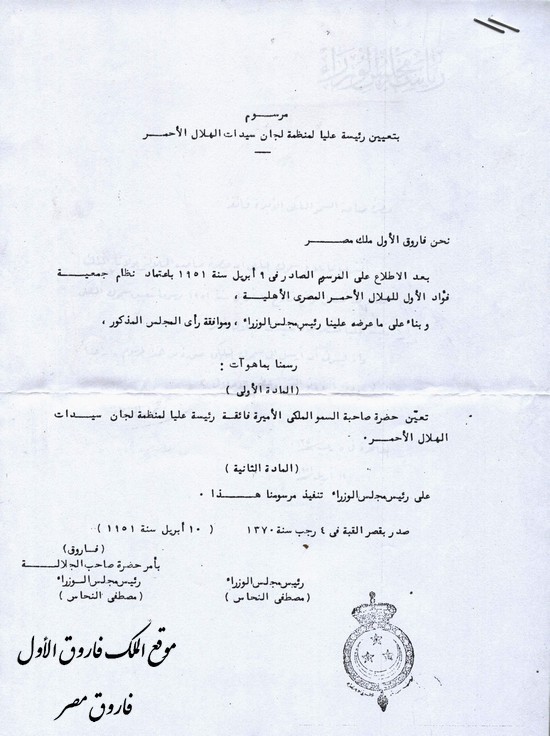 مرسوم
بتعيين رئيسة عليا لمنظمة لجان سيدات الهلال الأحمر
نحن فاروق الأول ملك مصر
بعد الاطلاع على المرسوم الصادر فى ٩ أبريل سنة ١٩٥١ باعتماد نظام جمعية
فؤاد الأول للهلال الأحمر المصرى الأهلية ،
وبناء على ما عرضه علينا رئيس مجلس الوزراء ، وموافقة رأى المجلس المذكور ،
رسمنا بما هو آت :
(المادة الأولى)
تعيّن حضرة صاحبة السمو الملكى الأميرة فائقة رئيسة عليا لمنظمة لجان سيدات
الهلال الأحمر .
(المادة الثانية)
على رئيس مجلس الوزراء تنفيذ مرسومنا هذا .
صدر بقصر القبة فى ٤ رجب سنة ١٣٧٠ ( ١٠ أبريل سنة ١٩٥١ )
(فاروق)
بأمر حضرة صاحب الجلالة
رئيس مجلس الوزراء رئيس مجلس الوزراء
(مصطفى النحاس) (مصطفى النحاس)
موقع الملك فاروق الأول
فاروق مصر